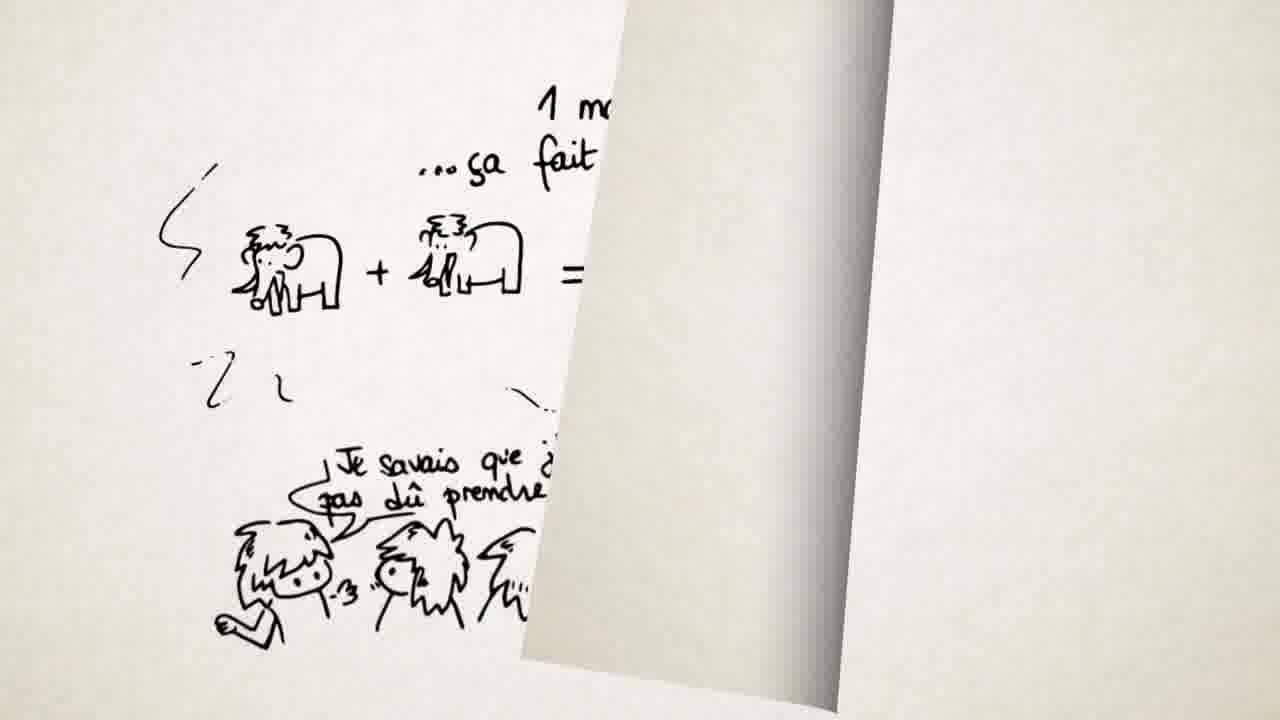 1
...ça fait
+ =
Je savais que
pas dû prendre